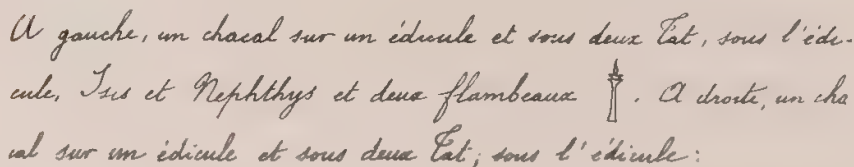 A gauche, un chacal sur un édicule et sous deux Tat, sous l'édi-
cule, Isis et Nephthys et deux flambeaux . A droite, un cha
cal sur un édicule et sous deux Tat; sous l'édicule: